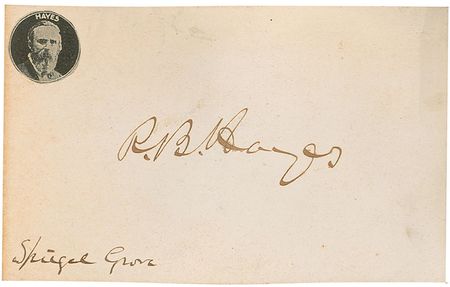 HAYES
R.B. Hayes
Spiegel Grove